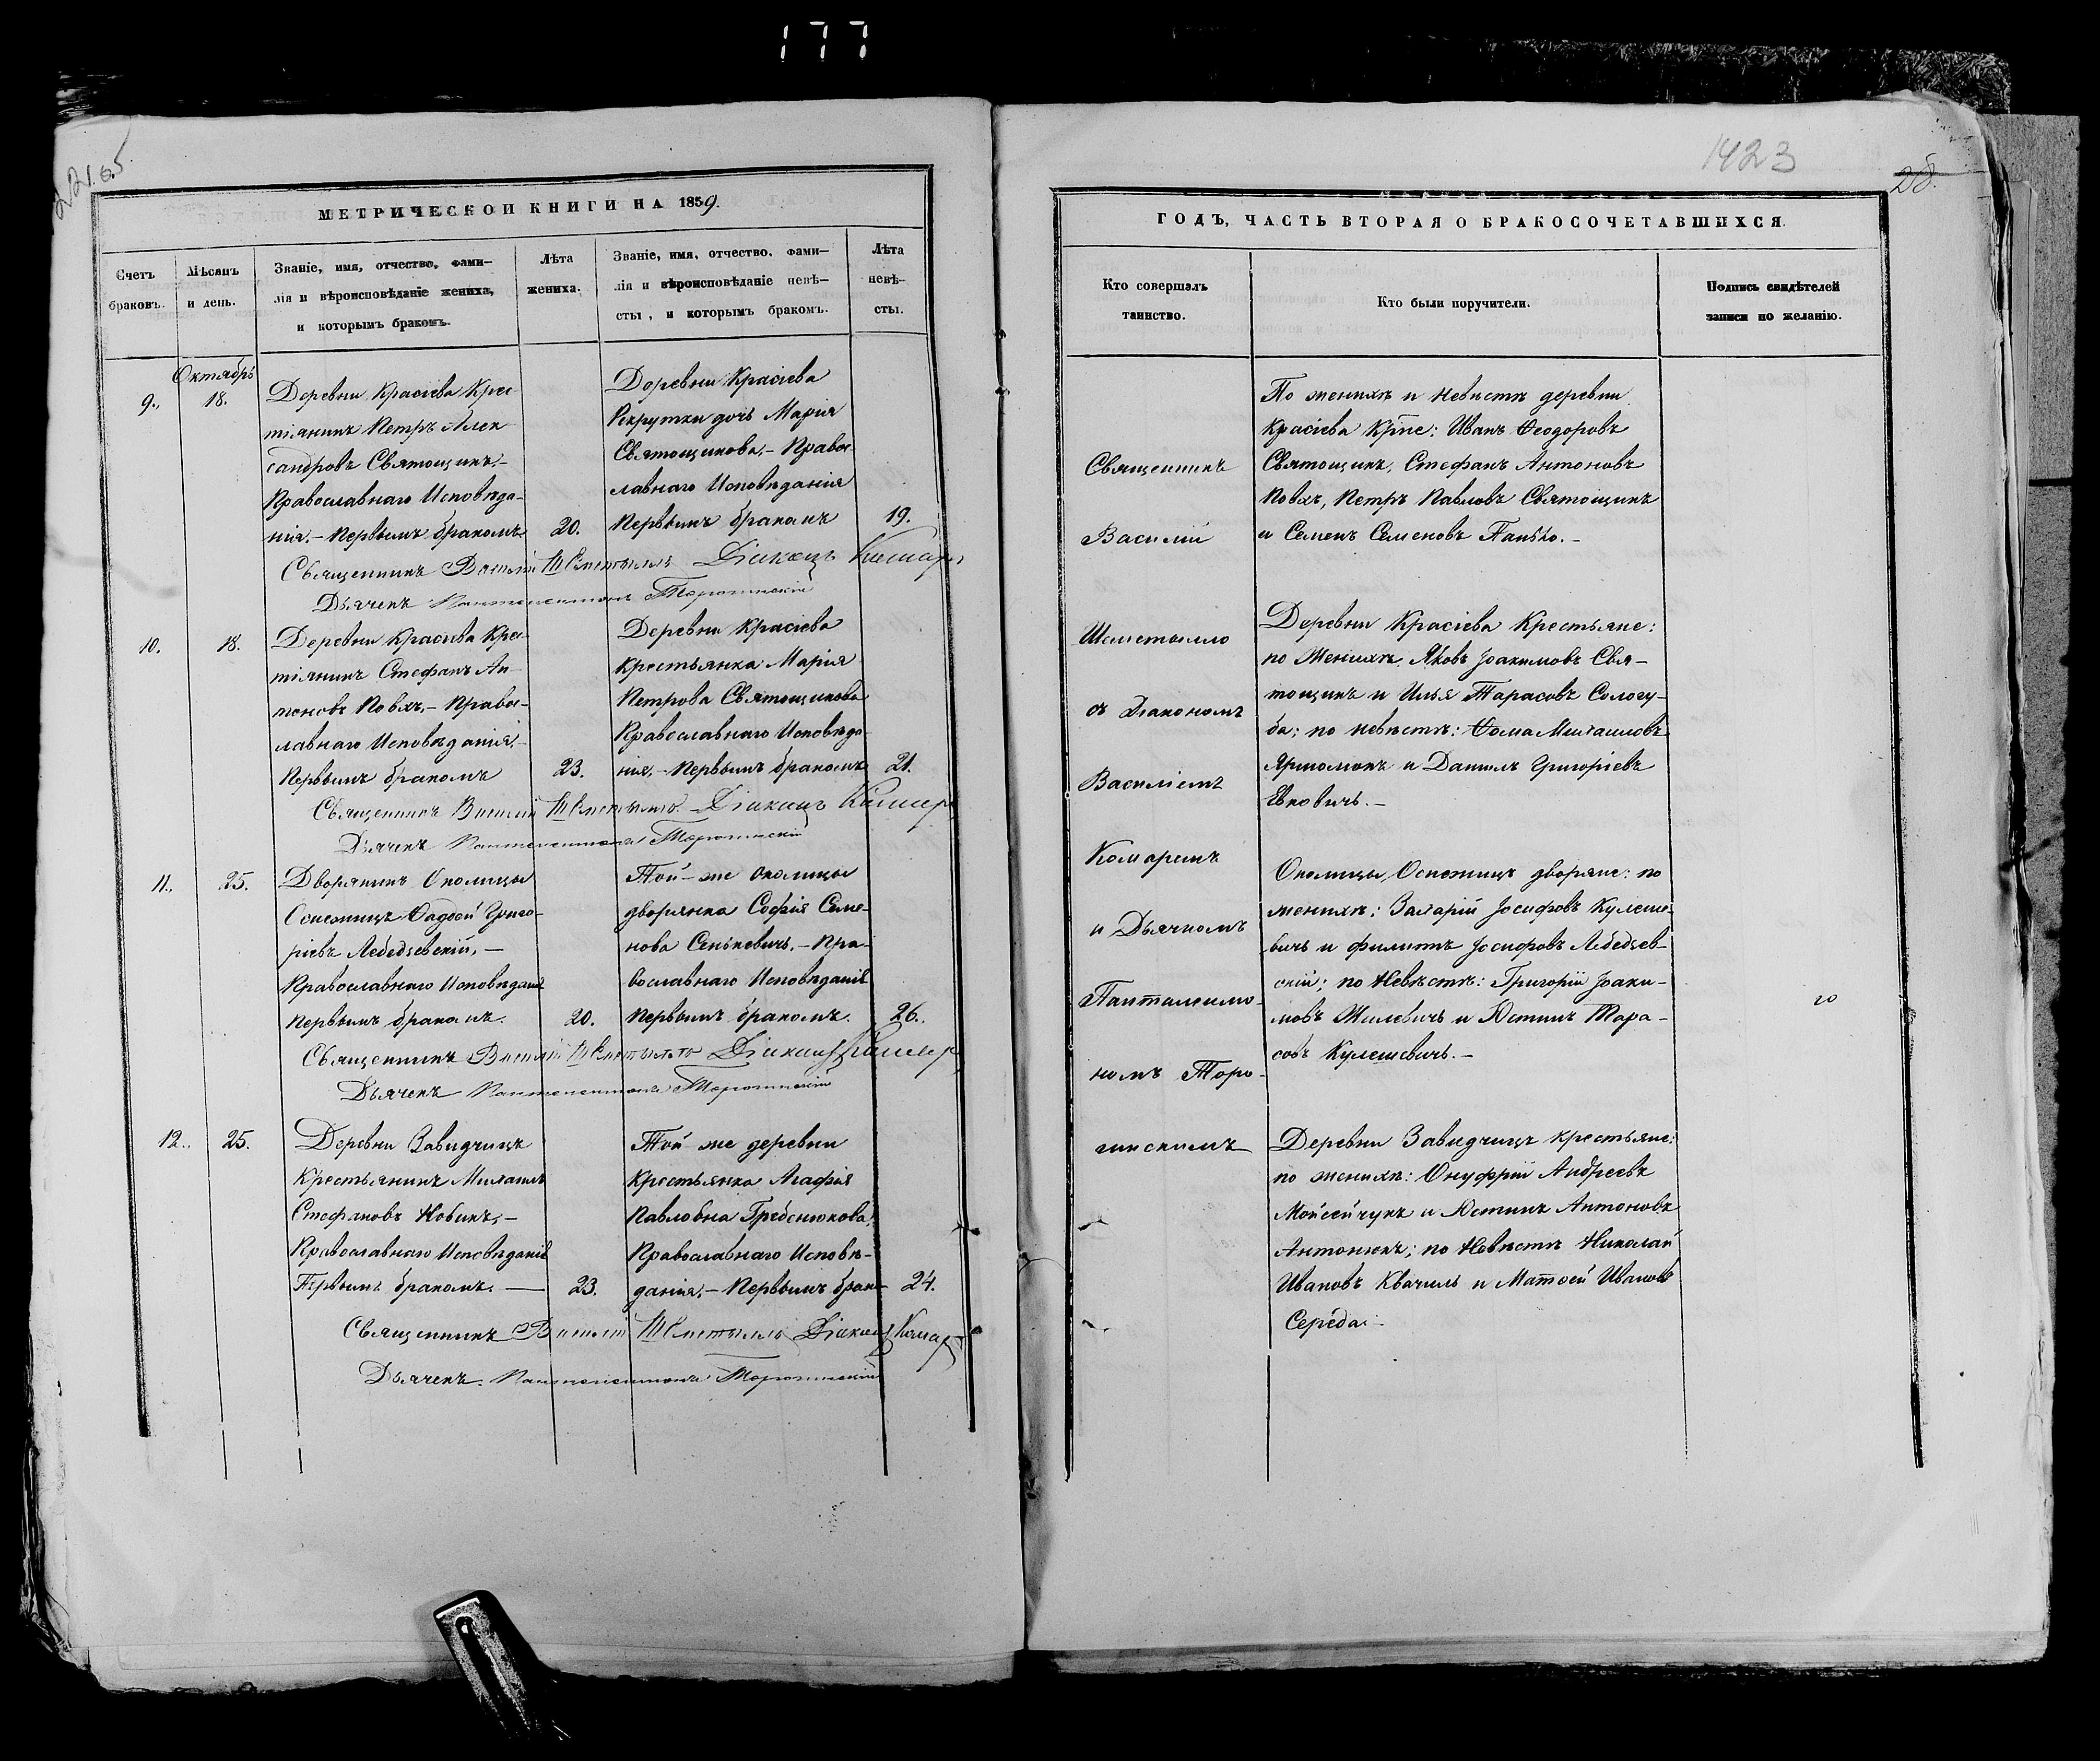 177
МЕТРИЧЕСКОЙ КНИГИ НА 1859.
Счетъ
браковъ.
Мѣсяцъ
и день.
Званіе, имя, отчество, фами-
лія и вѣроисповѣданіе жениха,
и которымъ бракомъ.
Лѣта
жениха.
Званіе, имя, отчество, фами-
лія и вѣроисповѣданіе невѣ-
сты, и которымъ бракомъ.
Лѣта
невѣ-
сты.
Октябрь
9., 18.
Деревни Красіева Крес
тіянинъ Петръ Алек
сандровъ Святощикъ,-
Православнаго Исповѣда-
нія.- Первымъ бракомъ
20.
Деревни Красіева
Рекрутки дочь Марія
Святощикова,- Правос-
лавнаго Исповѣданія
Первымъ бракомъ
19.
Священникъ Василій Шеметылло Діаконъ Комаръ
Дьячекъ Пантелеимонъ
10. 18.
Деревни Красіева Крес-
тіянинъ Стефанъ Ан-
тоновъ Повхъ,- Правос-
лавнаго Исповѣданія.-
Первымъ бракомъ
23.
Деревни Красіева
Крестьянка Марія
Петрова Святощикова
Православнаго Исповѣда-
нія.- Первымъ бракомъ
21.
Священникъ Василій Шеметылло Діаконъ Комаръ
Дьячекъ Пантелеимонъ
11. 25.
Дворянинъ Околицы
Осненицъ Фадѣй Григо-
ріевъ Лебедзевскій, -
Православнаго Исповѣданія
Первымъ бракомъ.
20.
Той-же Околицы
дворянка Софія Семе-
нова Сенькевичъ.- Пра-
вославнаго Исповѣданія
Первымъ бракомъ.
26.
Священникъ Василій Шеметылло Діаконъ Комаръ
Дьячекъ Пантелеимонъ
12. 25.
Деревни Завидчицъ
Крестьянинъ Михаилъ
Стефановъ Новикъ,-
Православнаго Исповѣданія
Первымъ бракомъ. -
23.
Той же деревни
Крестьянка Агафія
Павловна Гребенюкова,
Православнаго Исповѣ-
данія.- Первымъ брако-
24.
Священникъ Василій Шеметылло Діаконъ Комаръ
Дьячекъ Пантелеимонъ
1423
ГОДЪ, ЧАСТЬ ВТОРАЯ О БРАКОСОЧЕТАВШИХСЯ.
Кто совершалъ
таинство.
Кто были поручители.
Подпись свидѣтелей
записи по желанію.
Священникъ
Василій
Шеметылло
съ Діакономъ
Василіемъ
Комаремъ
и Дьячкомъ
Пантелеимо-
номъ Торо-
гинскимъ
По женихѣ и невѣстѣ деревни
Красіева Крпе: Иванъ Ѳеодоровъ
Святощикъ, Стефанъ Антоновъ
Повхъ, Петръ Павловъ Святощикъ
и Семенъ Семеновъ Панько.-
Деревни Красіева Крестьяне:
по Женихѣ, Яковъ Іоакимовъ Свя-
тощикъ и Илья Тарасовъ Сологу-
ба; по невѣстѣ: Ѳома Михаиловъ
Ярмолюкъ и Даніилъ Григоріевъ
Евковичъ.-
Околицы Осненицъ дворяне: по
женихѣ: Захарій Іосифовъ Кулеше-
вичъ и Филиппъ Іосифовъ Лебедзев-
скій; по Невѣстѣ: Григорій Іоаки-
мовъ Жилевичъ и Юстинъ Тара-
совъ Кулешевичъ.-
Деревни Завидчицъ крестьяне:
по женихѣ: Онуфрій Андреевъ
Мойсейчукъ и Юстинъ Антоновъ
Антонюкъ; по Невѣстѣ Николай
Ивановъ Квачилъ и Матѳей Ивановъ
Середа.-